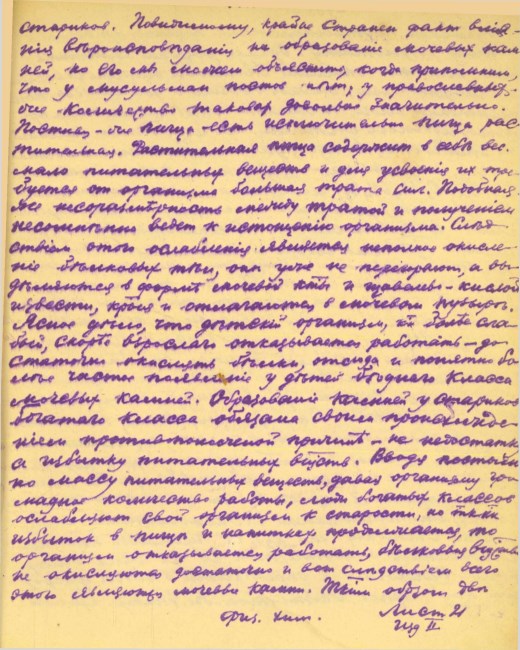 стариков. Повидимому, крайне странен факт влія-
нія вѣроисповѣданія на образованіе мочевых кам-
ней, но его мы можем объяснить, когда припомним,
что у мусульман постов нет; у православных-
же количество таковых довольно значительно.
Постная-же пища есть исключительно пища рас-
тительная. Растительная пища содержит в себѣ вес.
мало питательных веществ и для усвоенія их тре-
буется от организма большая трата сил. Подобная
же несоразмѣрность между тратой и полученіем
несомнѣнно ведет к истощенію организма. Слѣд-
ствіем этого ослабленія является неполное окисле-
ніе бѣлковых тѣл, они уже не перегорают, а вы-
дѣляются в формѣ мочевой к-ты и щавелево-кислой
извести, кои и отлагаются в мочевом пузырѣ.
Ясное дѣло, что дѣтскій организм, к-й болѣе сла-
бый, скорѣе взрослаго отказывается работать - до-
статочно окислять бѣлки, отсюда и понятно бо-
лее частое появленіе у дѣтей бѣднаго класса
мочевых камней. Образованіе камней у стариков
богатаго класса обязано своим происхожде-
ніем противоположной причинѣ - не недостатку,
а избытку питательных вѣств. Вводя постоян-
но массу питательных веществ, давая организму гро-
мадное количество работы, люди богатых классов
ослабляют свой организм к старости, но
избыток в пищѣ и напитках продолжается, то
организм отказывается работать, бѣлковыя в-ства
не окисляются достаточно и вот слѣдствіем всего
этого являются мочевые камни. Т-им образом два
Физ. хим.
Лист 21
Изд II